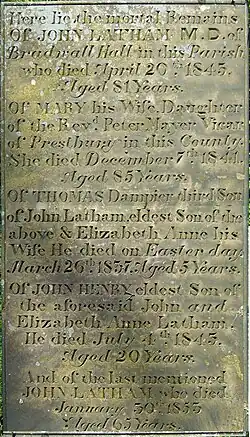 Here lie the mortal Remains
Of JOHN LATHAM M.D. of
Bradwall Hall in this Parish
who died April 20th 1843.
Aged 81 Years.
Of MARY his Wife, Daughter
of the Revd Peter Mayer Vicar
of Prestbury in this County.
She died December 7th 1841.
Aged 85 Years.
Of THOMAS Dampier third Son
of John Latham, eldest Son of the
above & Elizabeth Anne his
Wife He died on Easter day
March 26th 1837. Aged 5 Years.
Of JOHN HENRY, eldest Son of
the aforesaid John and
Elizabeth Anne Latham.
He died July 4th 1843.
Aged 20 Years.
And of the last mentioned
JOHN LATHAM who died
January 30th 1853
Aged 65 Years.